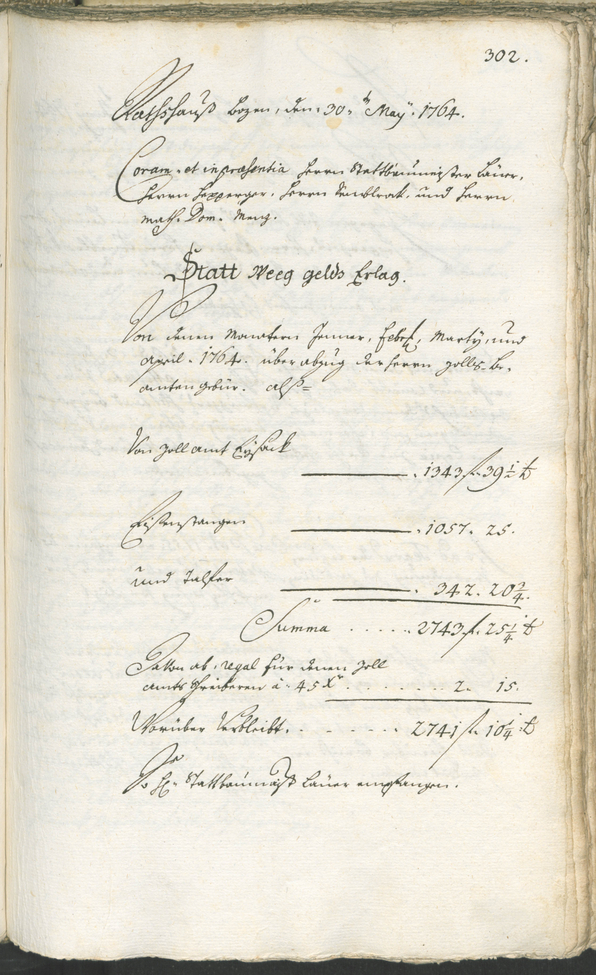 302.
Rathshauß Bozen, den 30.t May 1764.
Coram et in præsentia Herrn Stattbaumeister Lauer,
Herrn Hepperger, Herrn und Herrn
Math. Dom. Menz.
Statt Weeg gelds Erlag.
Von denen Monatern Jenner, Febr., Marty, und
April 1764. über abzug der Herrn Zolls Be-
amten gebür. alß=
Von Zoll amt Eysack
1343 f. 39 1/2 x
Eysenstangen
1057. 25.
und Talfer
342. 20 3/4.
Summa ..... 2743 f. 25 1/4 x
Davon ab, regal für denen Zoll
amts schreiberen a 45 x ....... 2. 15.
Worüber Verbleibt. ...... 2741 f. 10 1/4 x
So H. Stattbaumaist. Lauer empfangen.